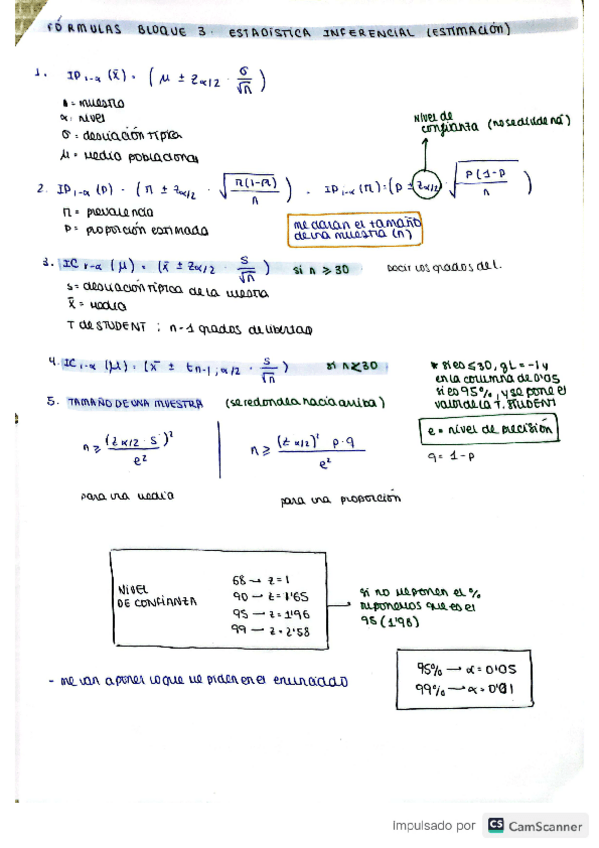 FÓRMULAS BLOQUE 3. ESTADÍSTICA INFERENCIAL (ESTIMACIÓN)
1. IP₁₋α (x̄) = ( μ ± zα/2 · σ/√n )
n = muestra
α = nivel
σ = desviación típica
μ = media poblacional
nivel de
confianza (no se divide na)
2. IP₁₋α (p) = ( π ± zα/2 · √(π(1-π)/n) ) . IP₁₋α (π) = (p ± zα/2 · √(p(1-p/n) )
π = prevalencia
p = proporción estimada
me darán el tamaño
de una muestra (n)
3. IC₁₋α (μ) = (x̄ ± zα/2 · s/√n ) si n ≥ 30 decir los grados de l.
s = desviación típica de la muestra
x̄ = media
T de STUDENT ; n-1 grados de libertad
4. IC₁₋α (μ) = (x̄ ± tn-1, α/2 · s/√n ) si n ≤ 30
* si es ≤ 30, gL = -1 y
en la columna de 0'05
si es 95%, y se pone el
valor de la T. STUDENT
5. TAMAÑO DE UNA MUESTRA (se redondea hacia arriba)
e = nivel de precisión
q = 1-p
n ≥ (zα/2 · s)²/e²
n ≥ (zα/2)² p·q/e²
para una media
para una proporción
NIVEL
DE CONFIANZA
68 → z = 1
90 → z = 1'65
95 — z = 1'96
99 — z = 2'58
si no me ponen el %
suponemos que es el
95 (1'96)
95% → α = 0'05
99% → α = 0'01
- me van a poner lo que me piden en el enunciado
Impulsado por CS CamScanner